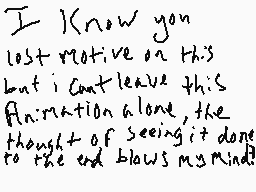 I Know you
lost motive on this
but i cant leave this
Animation alone, the
thought of seeing it done
to the end blows my mind!